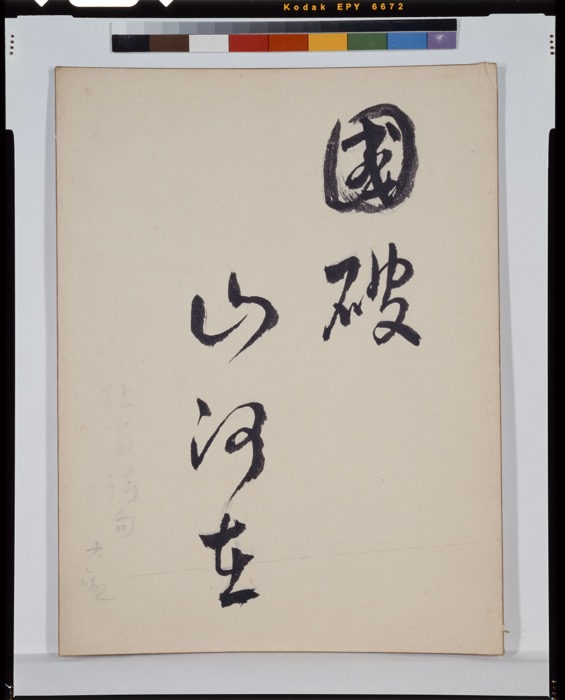 Kodak EPY 6672
國破
山河在